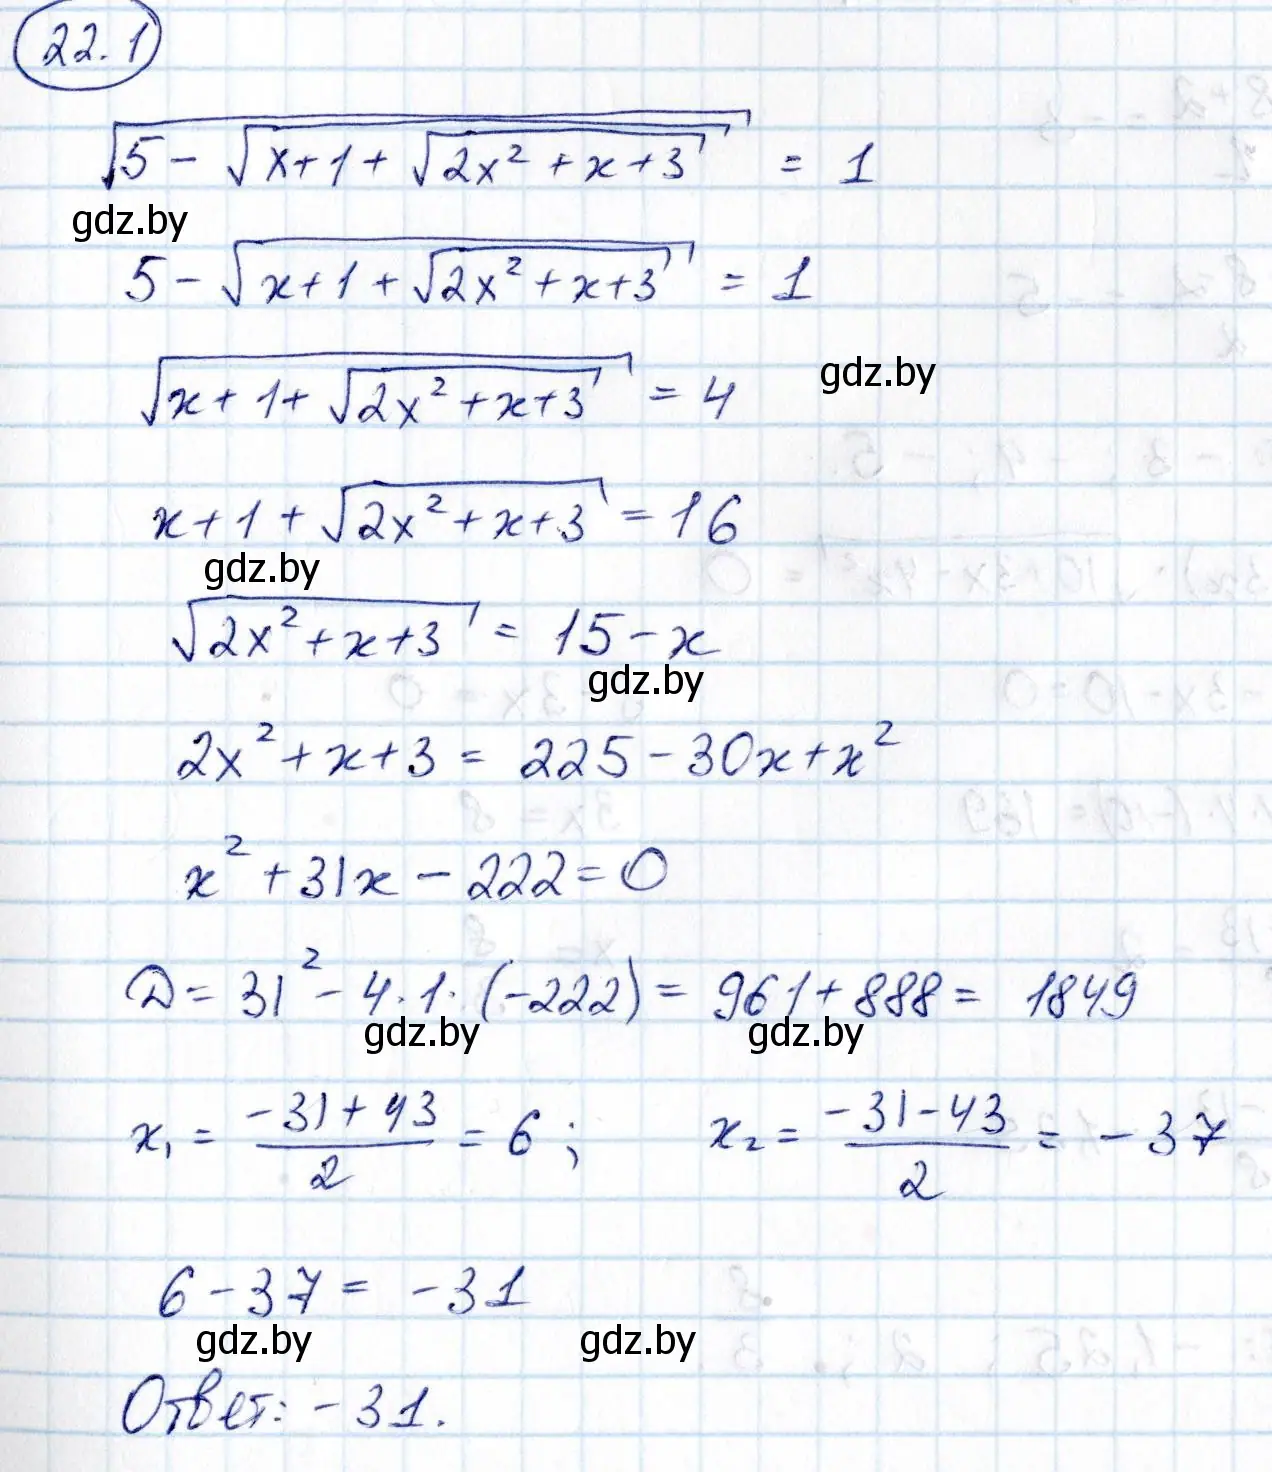 22.1
√(5 - √(x+1+√(2x² + x+3))) = 1
gdz.by
5 - √(x+1+√(2x² + x+3)) = 1
√(x+1+√(2x² + x+3)) = 4
gdz.by
x+1+√(2x² + x+3) = 16
gdz.by
√(2x² + x+3) = 15 - x
gdz.by
2x² + x+3 = 225 - 30x + x²
x² + 31x - 222 = 0
D = 31² - 4·1·(-222) = 961 + 888 = 1849
gdz.by gdz.by
x₁ = (-31+43)/2 = 6; x₂ = (-31-43)/2 = -37
6 - 37 = -31
gdz.by gdz.by
Ответ: -31.